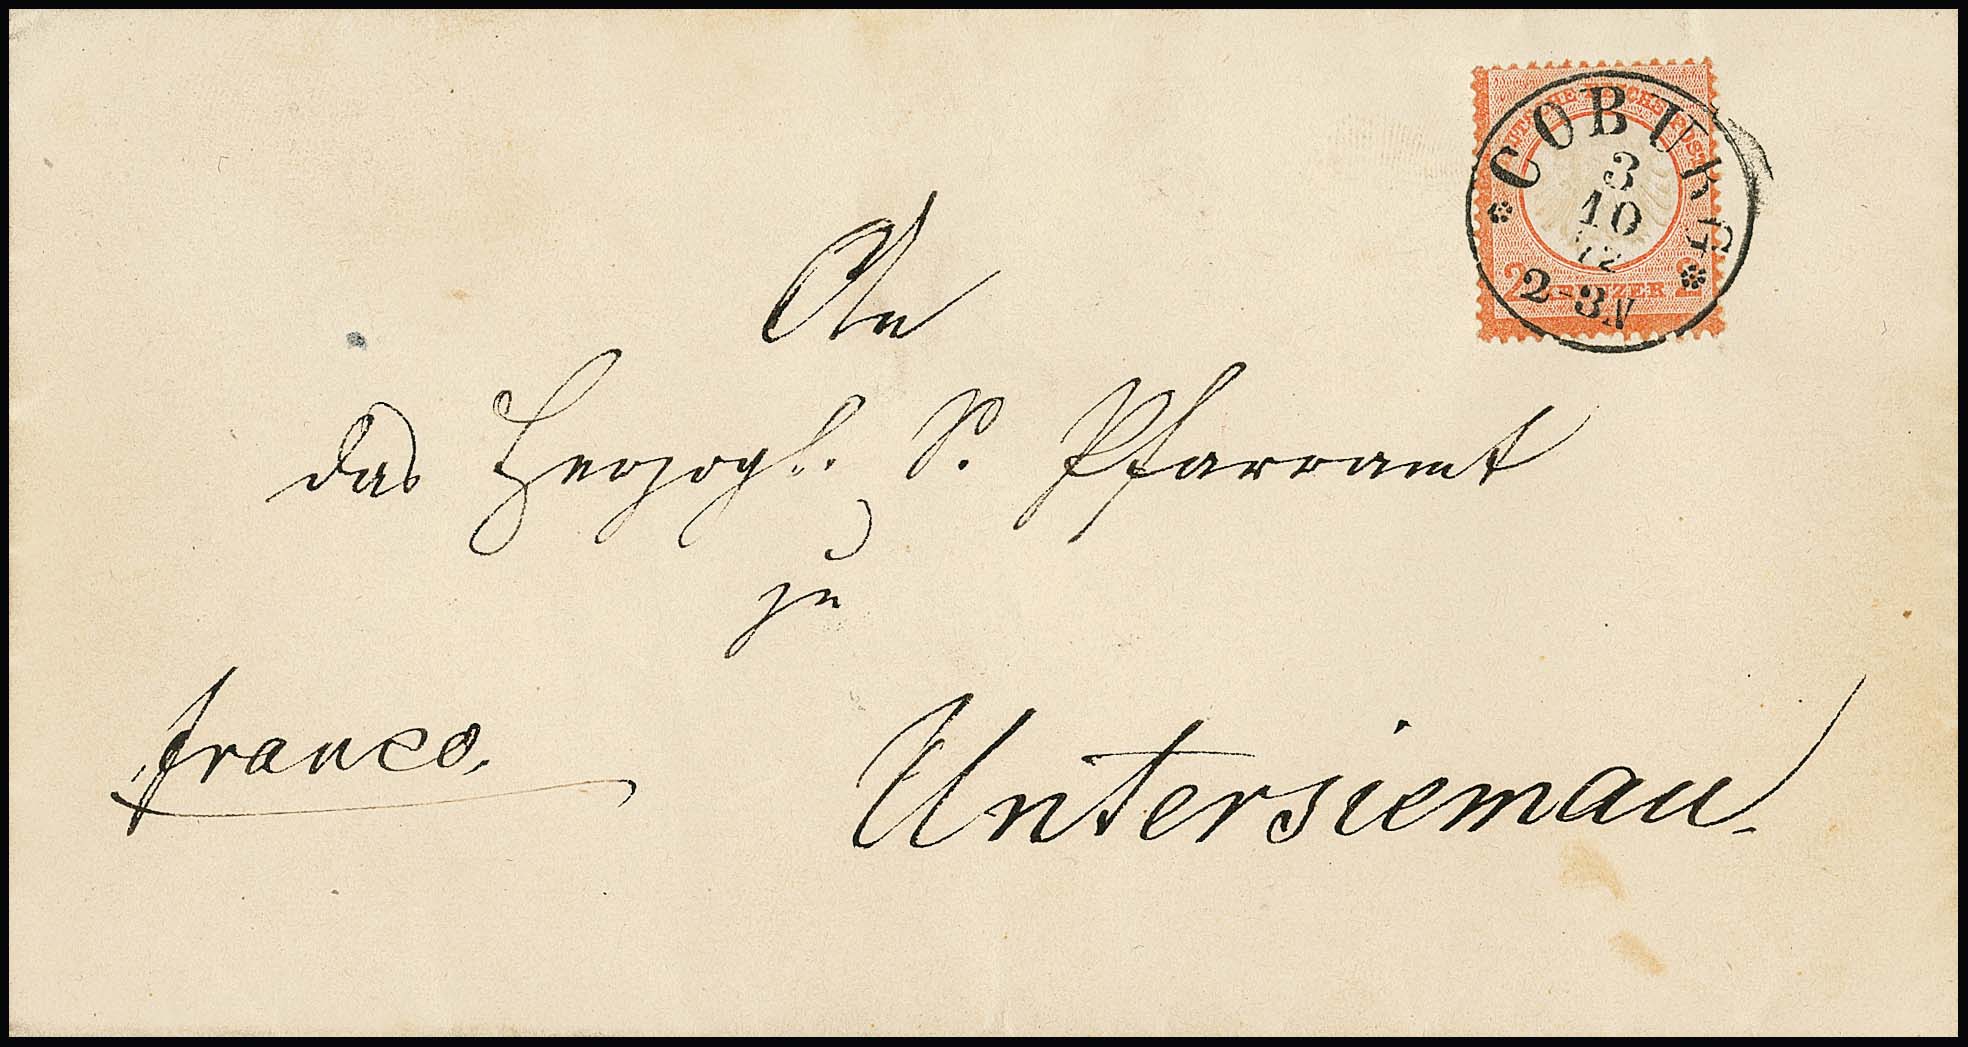 DEUTSCHE REICHS-POST
2 KREUZER 2
COBURG
3
10
72
2-3N
An
das Herzogl. S. Pfarramt
zu
Untersiemau.
franco,